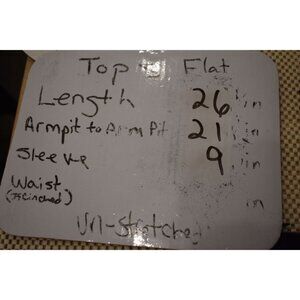 Top Flat
Length 26 in
Armpit to Arm Pit 21 in
Sleeve 9 in
Waist in
(If Cinched)
Un-Stretched